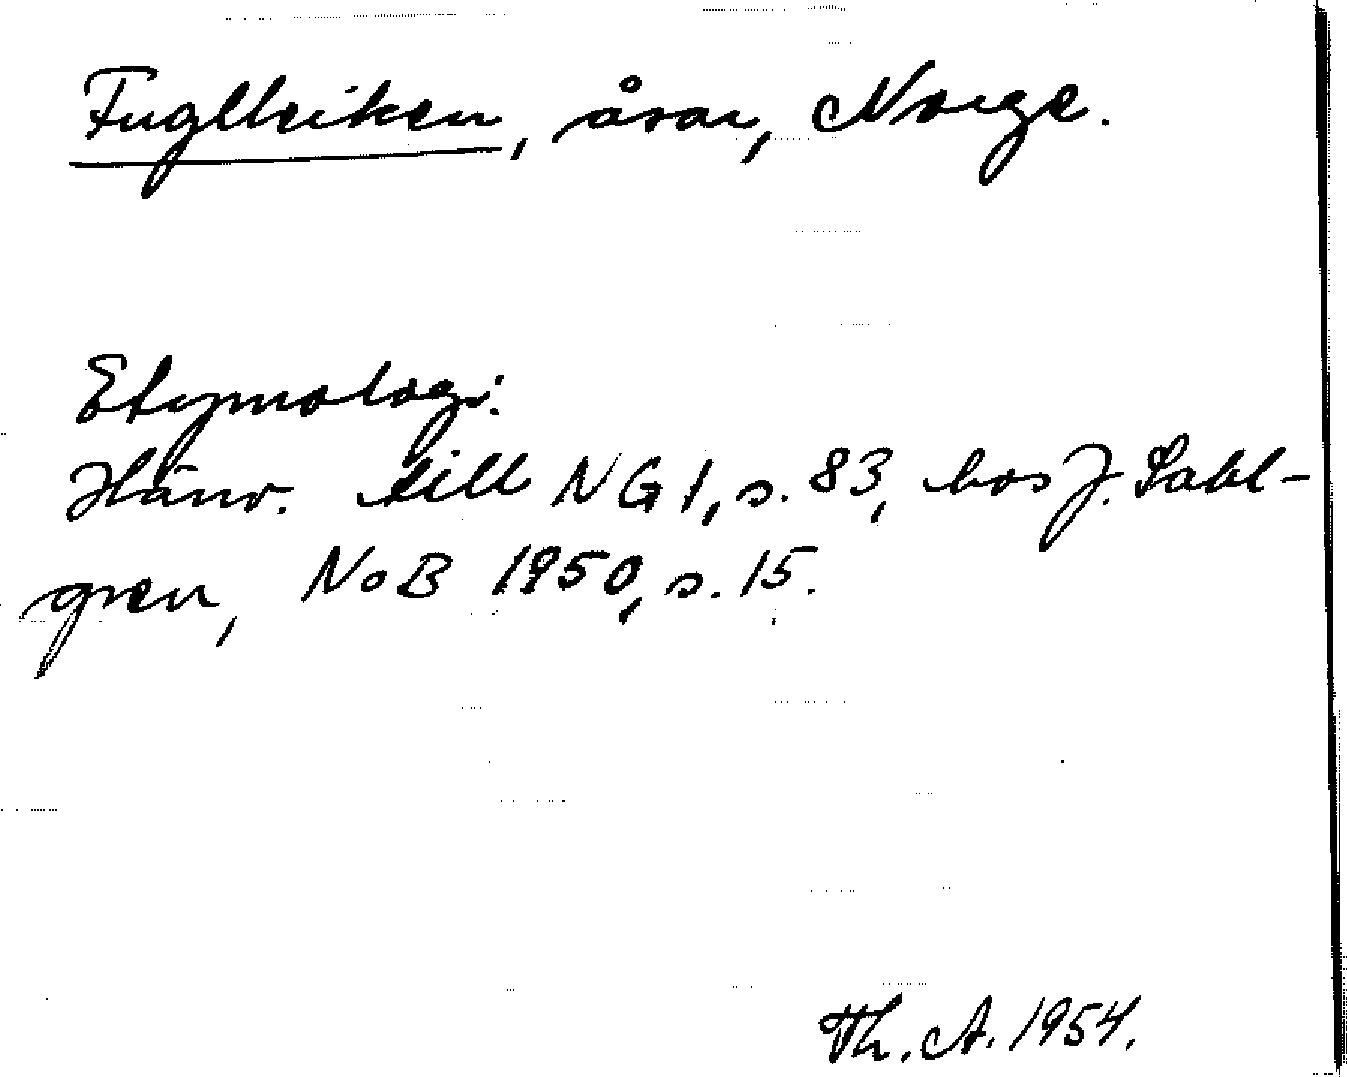 Fuglleiken, åsar, Norge.
Etymologi:
Hänv. till NG 1, s. 83, hos J. Sahl-
gren, NoB 1950, s. 15.
Th. A. 1954.